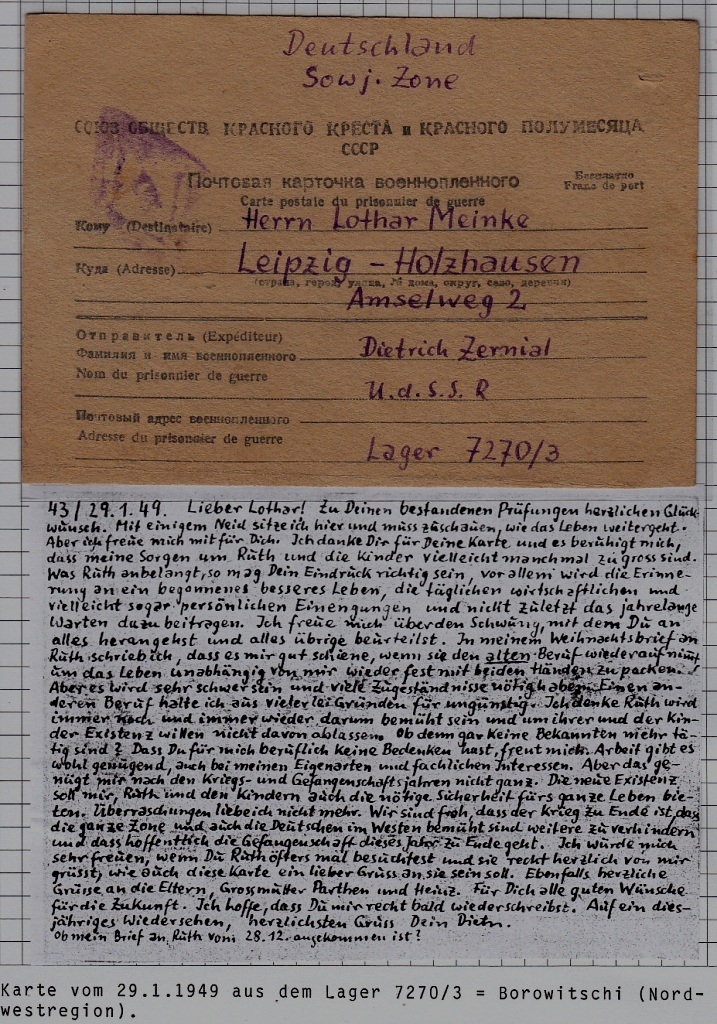 Deutschland
Sowj. Zone
СОЮЗ ОБЩЕСТВ КРАСНОГО КРЕСТА и КРАСНОГО ПОЛУМЕСЯЦА
СССР
Почтовая карточка военнопленного
Бесплатно
Franc de port
Carte postale du prisonnier de guerre
Кому (Destinataire) Herrn Lothar Meinke
Куда (Adresse) Leipzig - Holzhausen
(страна, город, улица, № дома, округ, село, деревня)
Amselweg 2
Отправитель (Expéditeur)
Фамилия и имя военнопленного Dietrich Zernial
Nom du prisonnier de guerre
U.d.S.S.R
Почтовый адрес военнопленного
Adresse du prisonnier de guerre
Lager 7270/3
43/29.1.49. Lieber Lothar! Zu Deinen bestandenen Prüfungen herzlichen Glück-
wunsch. Mit einigem Neid sitze ich hier und muss zuschauen, wie das Leben weitergeht.
Aber ich freue mich mit für Dich. Ich danke Dir für Deine Karte und es beruhigt mich,
dass meine Sorgen um Ruth und die Kinder vielleicht manchmal zu gross sind.
Was Ruth anbelangt, so mag Dein Eindruck richtig sein, vor allem wird die Erinne-
rung an ein begonnenes besseres Leben, die täglichen wirtschaftlichen und
vielleicht sogar persönlichen Einengungen und nicht zuletzt das jahrelange
Warten dazu beitragen. Ich freue mich über den Schwung, mit dem Du an
alles herangehst und alles übrige beurteilst. In meinem Weihnachtsbrief an
Ruth schrieb ich, dass es mir gut schiene, wenn sie den alten Beruf wieder aufnimmt
um das Leben unabhängig von mir wieder fest mit beiden Händen zu packen.
Aber es wird sehr schwer sein und viele Zugeständnisse nötig haben. Einen an-
deren Beruf halte ich aus vielerlei Gründen für ungünstig. Ich denke Ruth wird
immer noch und immer wieder darum bemüht sein und um ihrer und der Kin-
der Existenz willen nicht davon ablassen. Ob denn gar keine Bekannten mehr tä-
tig sind? Dass Du für mich beruflich keine Bedenken hast, freut mich. Arbeit gibt es
wohl genügend, auch bei meinen Eigenarten und fachlichen Interessen. Aber das ge-
nügt mir nach den Kriegs- und Gefangenschaftsjahren nicht ganz. Die neue Existenz
soll mir, Ruth und den Kindern auch die nötige Sicherheit fürs ganze Leben bie-
ten. Überraschungen liebe ich nicht mehr. Wir sind froh, dass der Krieg zu Ende ist, dass
die ganze Zone und auch die Deutschen im Westen bemüht sind weitere zu verhindern
und dass hoffentlich die Gefangenschaft dieses Jahr zu Ende geht. Ich würde mich
sehr freuen, wenn Du Ruth öfters mal besuchtest und sie recht herzlich von mir
grüsst, wie auch diese Karte ein lieber Gruss an sie sein soll. Ebenfalls herzliche
Grüsse an die Eltern, Grossmutter Parthen und Heinz. Für Dich alle guten Wünsche
für die Zukunft. Ich hoffe, dass Du mir recht bald wiederschreibst. Auf ein dies-
jähriges Wiedersehen, herzlichsten Gruss Dein Dietr.
Ob mein Brief an Ruth vom 28.12. angekommen ist?
Karte vom 29.1.1949 aus dem Lager 7270/3 = Borowitschi (Nord-
westregion).